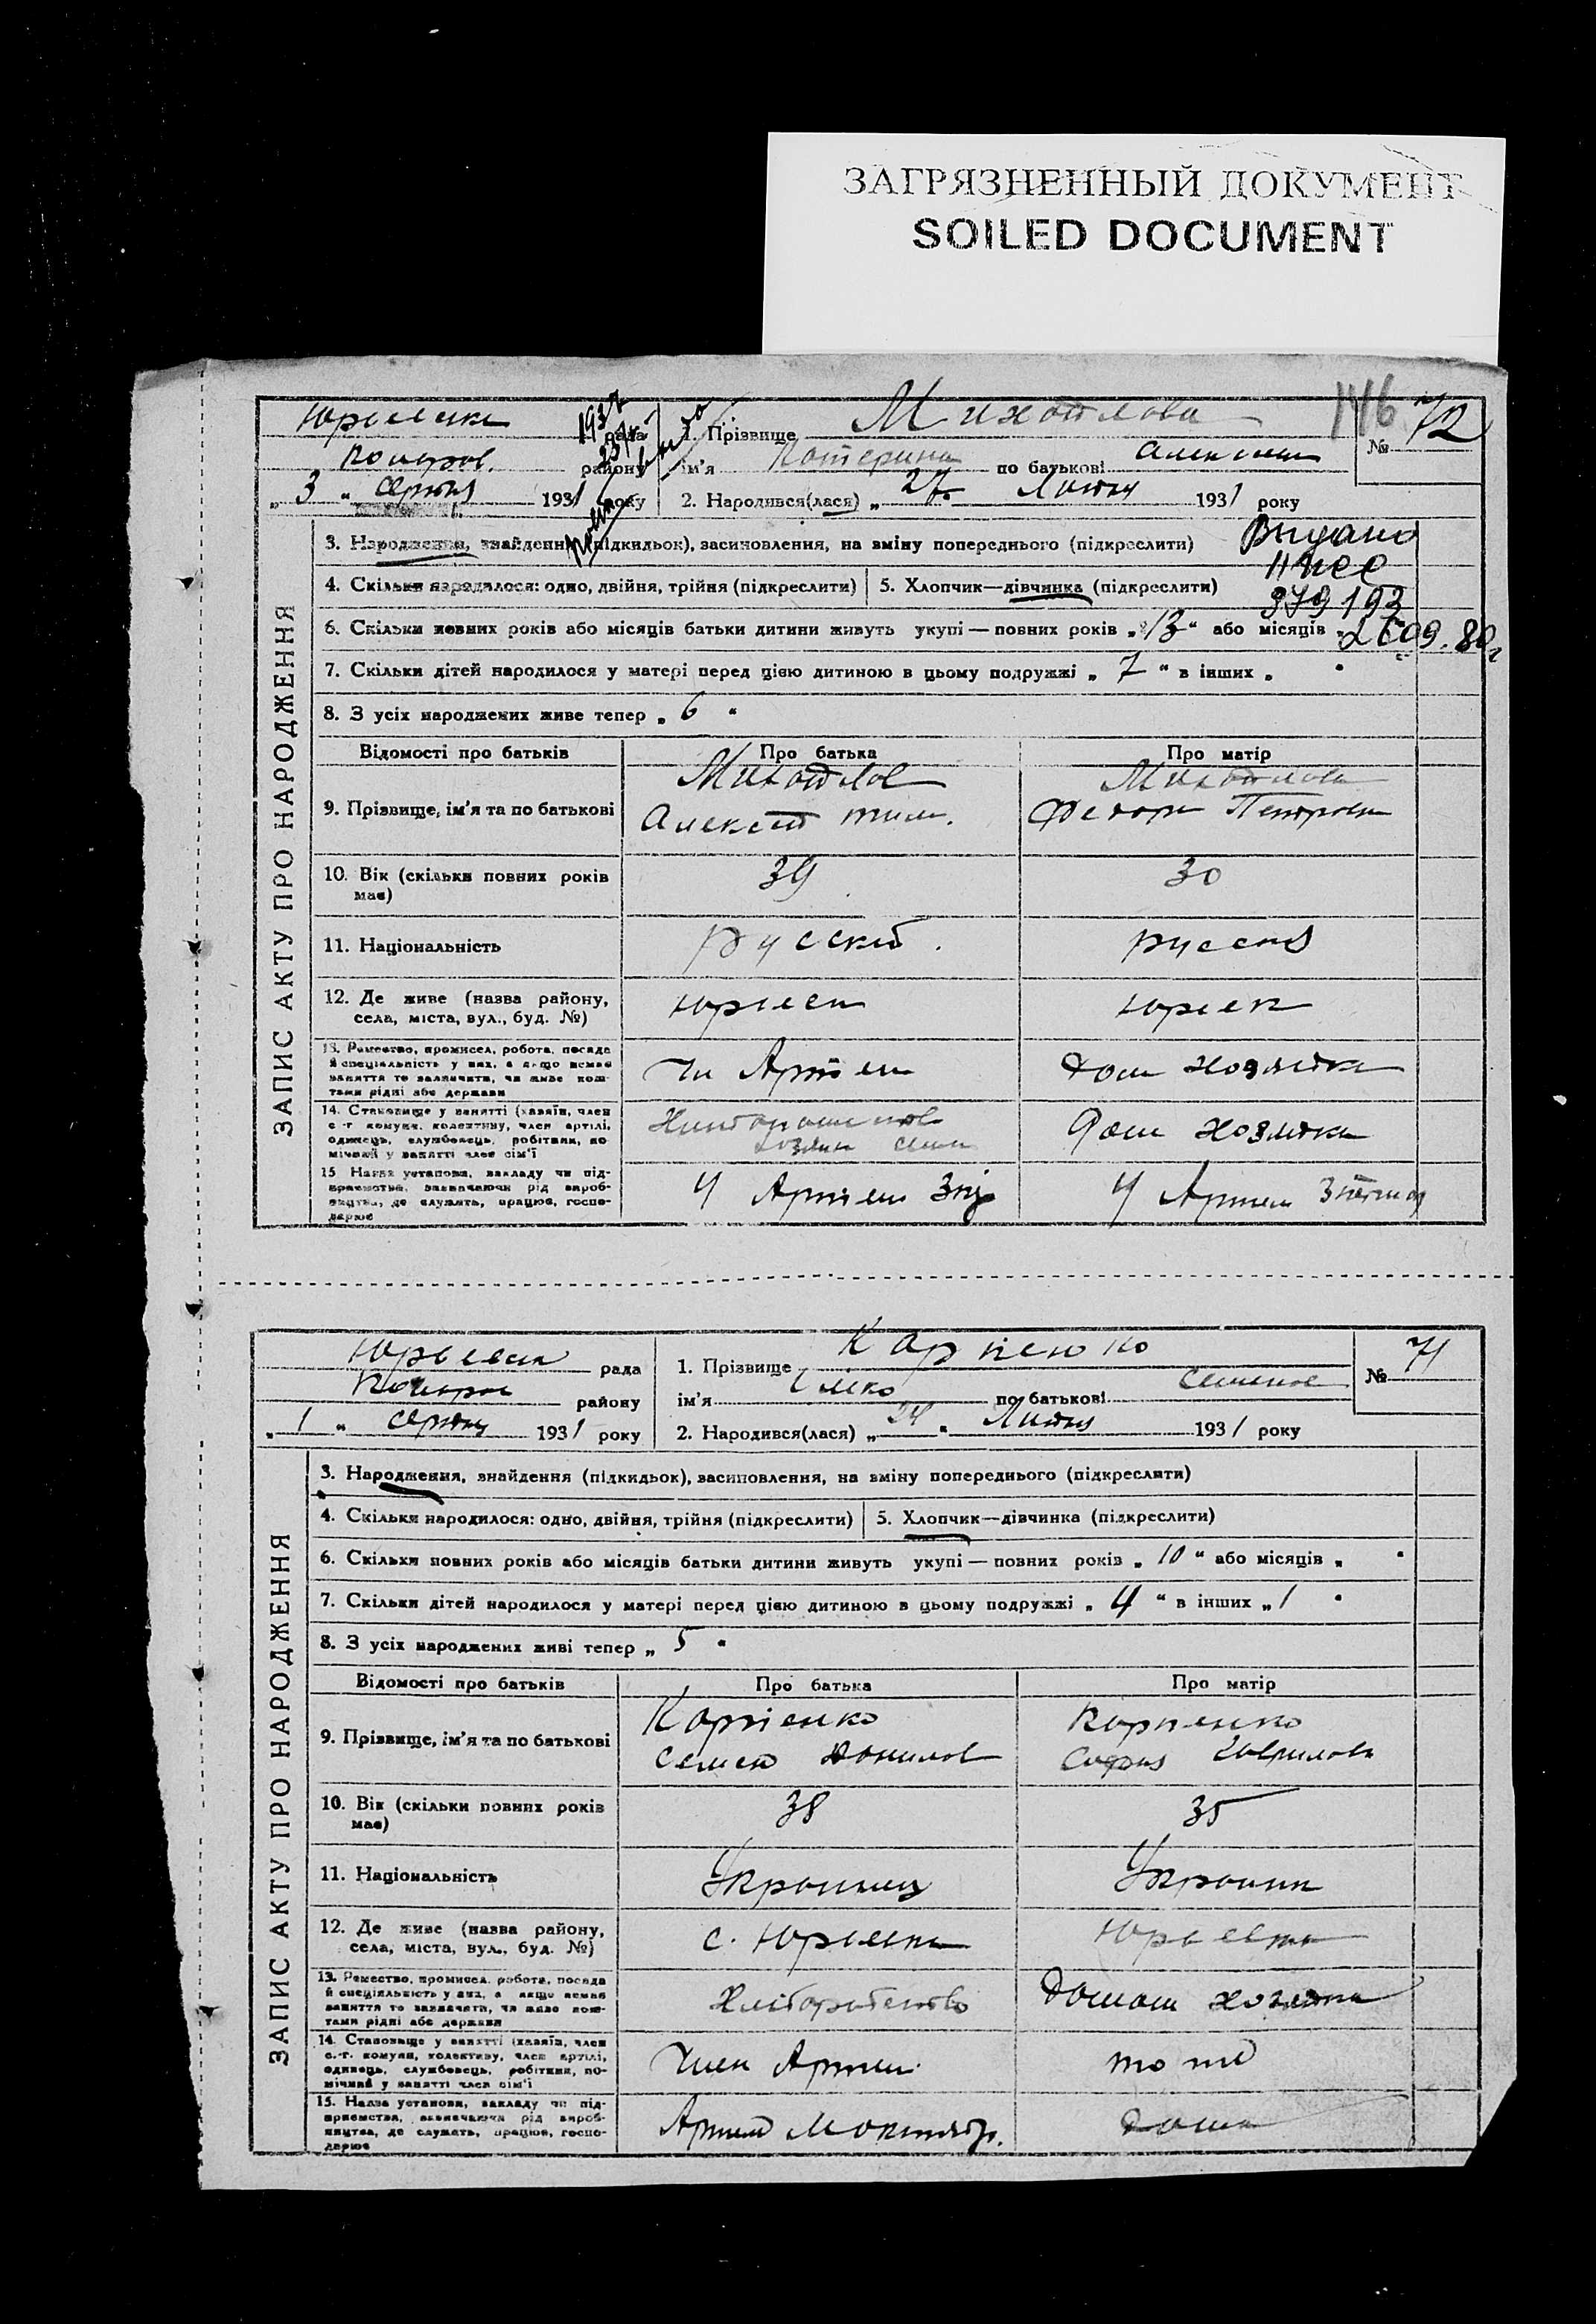 ЗАГРЯЗНЕННЫЙ ДОКУМЕНТ
SOILED DOCUMENT
рада
району
„ 3 “ серпня 1931 року
1. Прізвище Михайлова
ім'я Катерина по батькові
2. Народився(лася) „ 27 “ Липня 1931 року
№ 72
146
Выдано
379193
ЗАПИС АКТУ ПРО НАРОДЖЕННЯ
3. Народження, знайдення (підкидьок), засиновлення, на зміну попереднього (підкреслити)
4. Скільки народилося: одно, двійня, трійня (підкреслити)
5. Хлопчик—дівчинка (підкреслити)
6. Скільки повних років або місяців батьки дитини живуть укупі — повних років „ 13 “ або місяців „
7. Скільки дітей народилося у матері перед цією дитиною в цьому подружжі „ 7 “ в інших „ “
8. З усіх народжених живе тепер „ 6 “
Відомості про батьків
Про батька
Про матір
9. Прізвище, ім'я та по батькові
Михайлов
Алексей Тим.
Михайлова
Федора Петровн
10. Вік (скільки повних років має)
39
30
11. Національність
Русский
русская
12. Де живе (назва району, села, міста, вул., буд. №)
13. Ремество, промисел, робота, посада й спеціяльність у них, а якщо немає заняття то зазначити, чи живе коштами рідні або держави
Чл Артели
дом хозяйка
14. Становище у занятті (хазяїн, член с.-г. комуни, колективу, член артілі, одинець, службовець, робітник, помічний у занятті член сім'ї
дом хозяйка
15. Назва установи, закладу чи підприємства, зазначаючи рід виробництва, де служить, працює, господарює
У Артели
У Артели
рада
району
„ 1 “ серпня 1931 року
1. Прізвище Карпенко
ім'я по батькові Семенов
2. Народився(лася) „ 24 “ Липня 1931 року
№ 71
ЗАПИС АКТУ ПРО НАРОДЖЕННЯ
3. Народження, знайдення (підкидьок), засиновлення, на зміну попереднього (підкреслити)
4. Скільки народилося: одно, двійня, трійня (підкреслити)
5. Хлопчик—дівчинка (підкреслити)
6. Скільки повних років або місяців батьки дитини живуть укупі — повних років „ 10 “ або місяців „ “
7. Скільки дітей народилося у матері перед цією дитиною в цьому подружжі „ 4 “ в інших „ 1 “
8. З усіх народжених живі тепер „ 5 “
Відомості про батьків
Про батька
Про матір
9. Прізвище, ім'я та по батькові
Карпенко
Семен Данилов
Карпенко
София Гаврилова
10. Вік (скільки повних років має)
38
35
11. Національність
Украинец
Украин
12. Де живе (назва району, села, міста, вул., буд. №)
с. Юрьевка
Юрьевка
13. Ремество, промисел, робота, посада й спеціяльність у них, а якщо немає заняття то зазначити, чи живе коштами рідні або держави
Хлiборобство
Домаш хозяйка
14. Становище у занятті (хазяїн, член с.-г. комуни, колективу, член артілі, одинець, службовець, робітник, помічний у занятті член сім'ї
Член Артели
то же
15. Назва установи, закладу чи підприємства, зазначаючи рід виробництва, де служить, працює, господарює
Дома